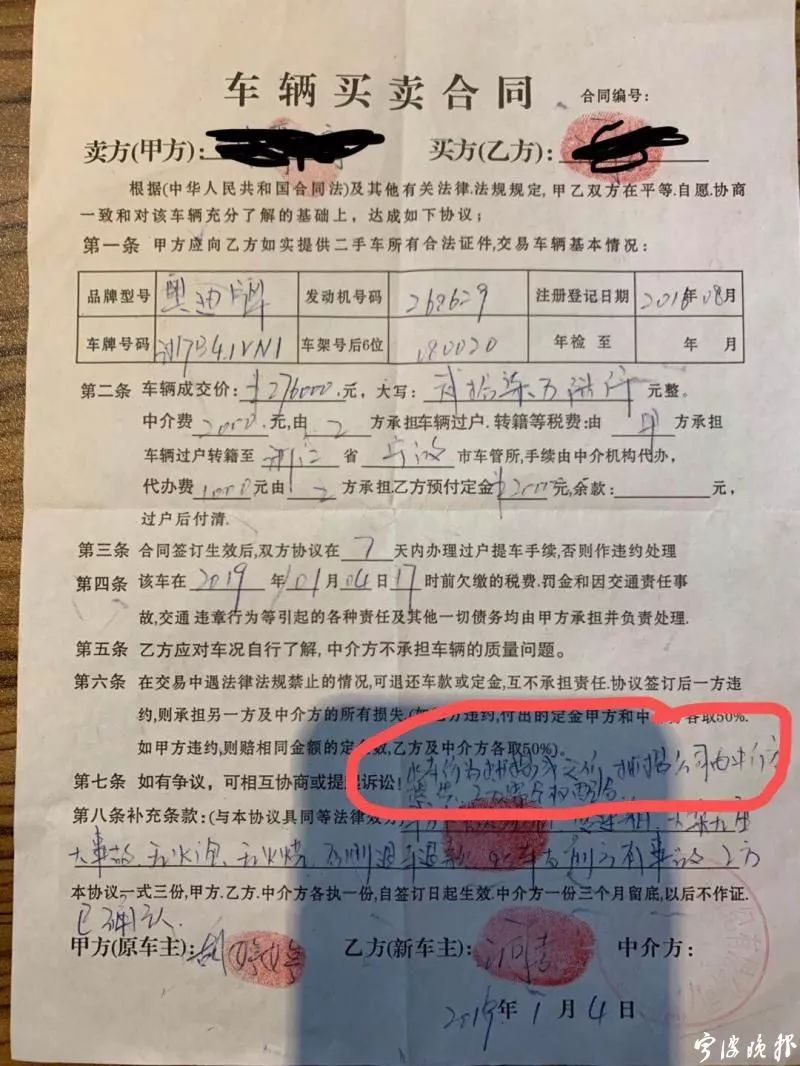 车辆买卖合同
合同编号:
卖方(甲方): 买方(乙方):
根据(中华人民共和国合同法)及其他有关法律.法规规定,甲乙双方在平等.自愿.协商
一致和对该车辆充分了解的基础上，达成如下协议；
第一条 甲方应向乙方如实提供二手车所有合法证件,交易车辆基本情况：
品牌型号 奥迪牌 发动机号码 268629 注册登记日期 2016年08月
车牌号码 浙B41VN1 车架号后6位 080020 年检至 年 月
第二条 车辆成交价: $276000.元，大写: 贰拾柒万陆仟 元整。
中介费 2000.元,由 乙 方承担车辆过户.转籍等税费:由 甲 方承担
车辆过户转籍至 浙江 省 宁波 市车管所,手续由中介机构代办，
代办费 1000 元由 乙 方承担.乙方预付定金 $2000 元,余款: 元，
过户后付清.
第三条 合同签订生效后,双方协议在 7 天内办理过户提车手续,否则作违约处理
第四条 该车在 2019 年 01 月 04 日 17 时前欠缴的税费.罚金和因交通责任事
故,交通 违章行为等引起的各种责任及其他一切债务均由甲方承担并负责处理.
第五条 乙方应对车况自行了解,中介方不承担车辆的质量问题。
第六条 在交易中遇法律法规禁止的情况,可退还车款或定金,互不承担责任.协议签订后一方违
约,则承担另一方及中介方的所有损失.(如乙方违约,付出的定金甲方和中 各取50%.
如甲方违约,则赔相同金额的定 数,乙方及中介方各取50%)。
此车价为按揭成交价，按揭公司由中介方
乙方需全力配合.
第七条 如有争议，可相互协商或提起诉讼!
第八条补充条款:(与本协议具同等法律效力)
大事故、无水泡、无火烧，否则退车退款，此车 前方有事故 乙方
本协议一式三份,甲方.乙方.中介方各执一份,自签订日起生效.中介方一份三个月留底,以后不作证.
已确认
甲方(原车主): 胡婷婷 乙方(新车主): 中介方：
2019年1月4日
宁波晚报